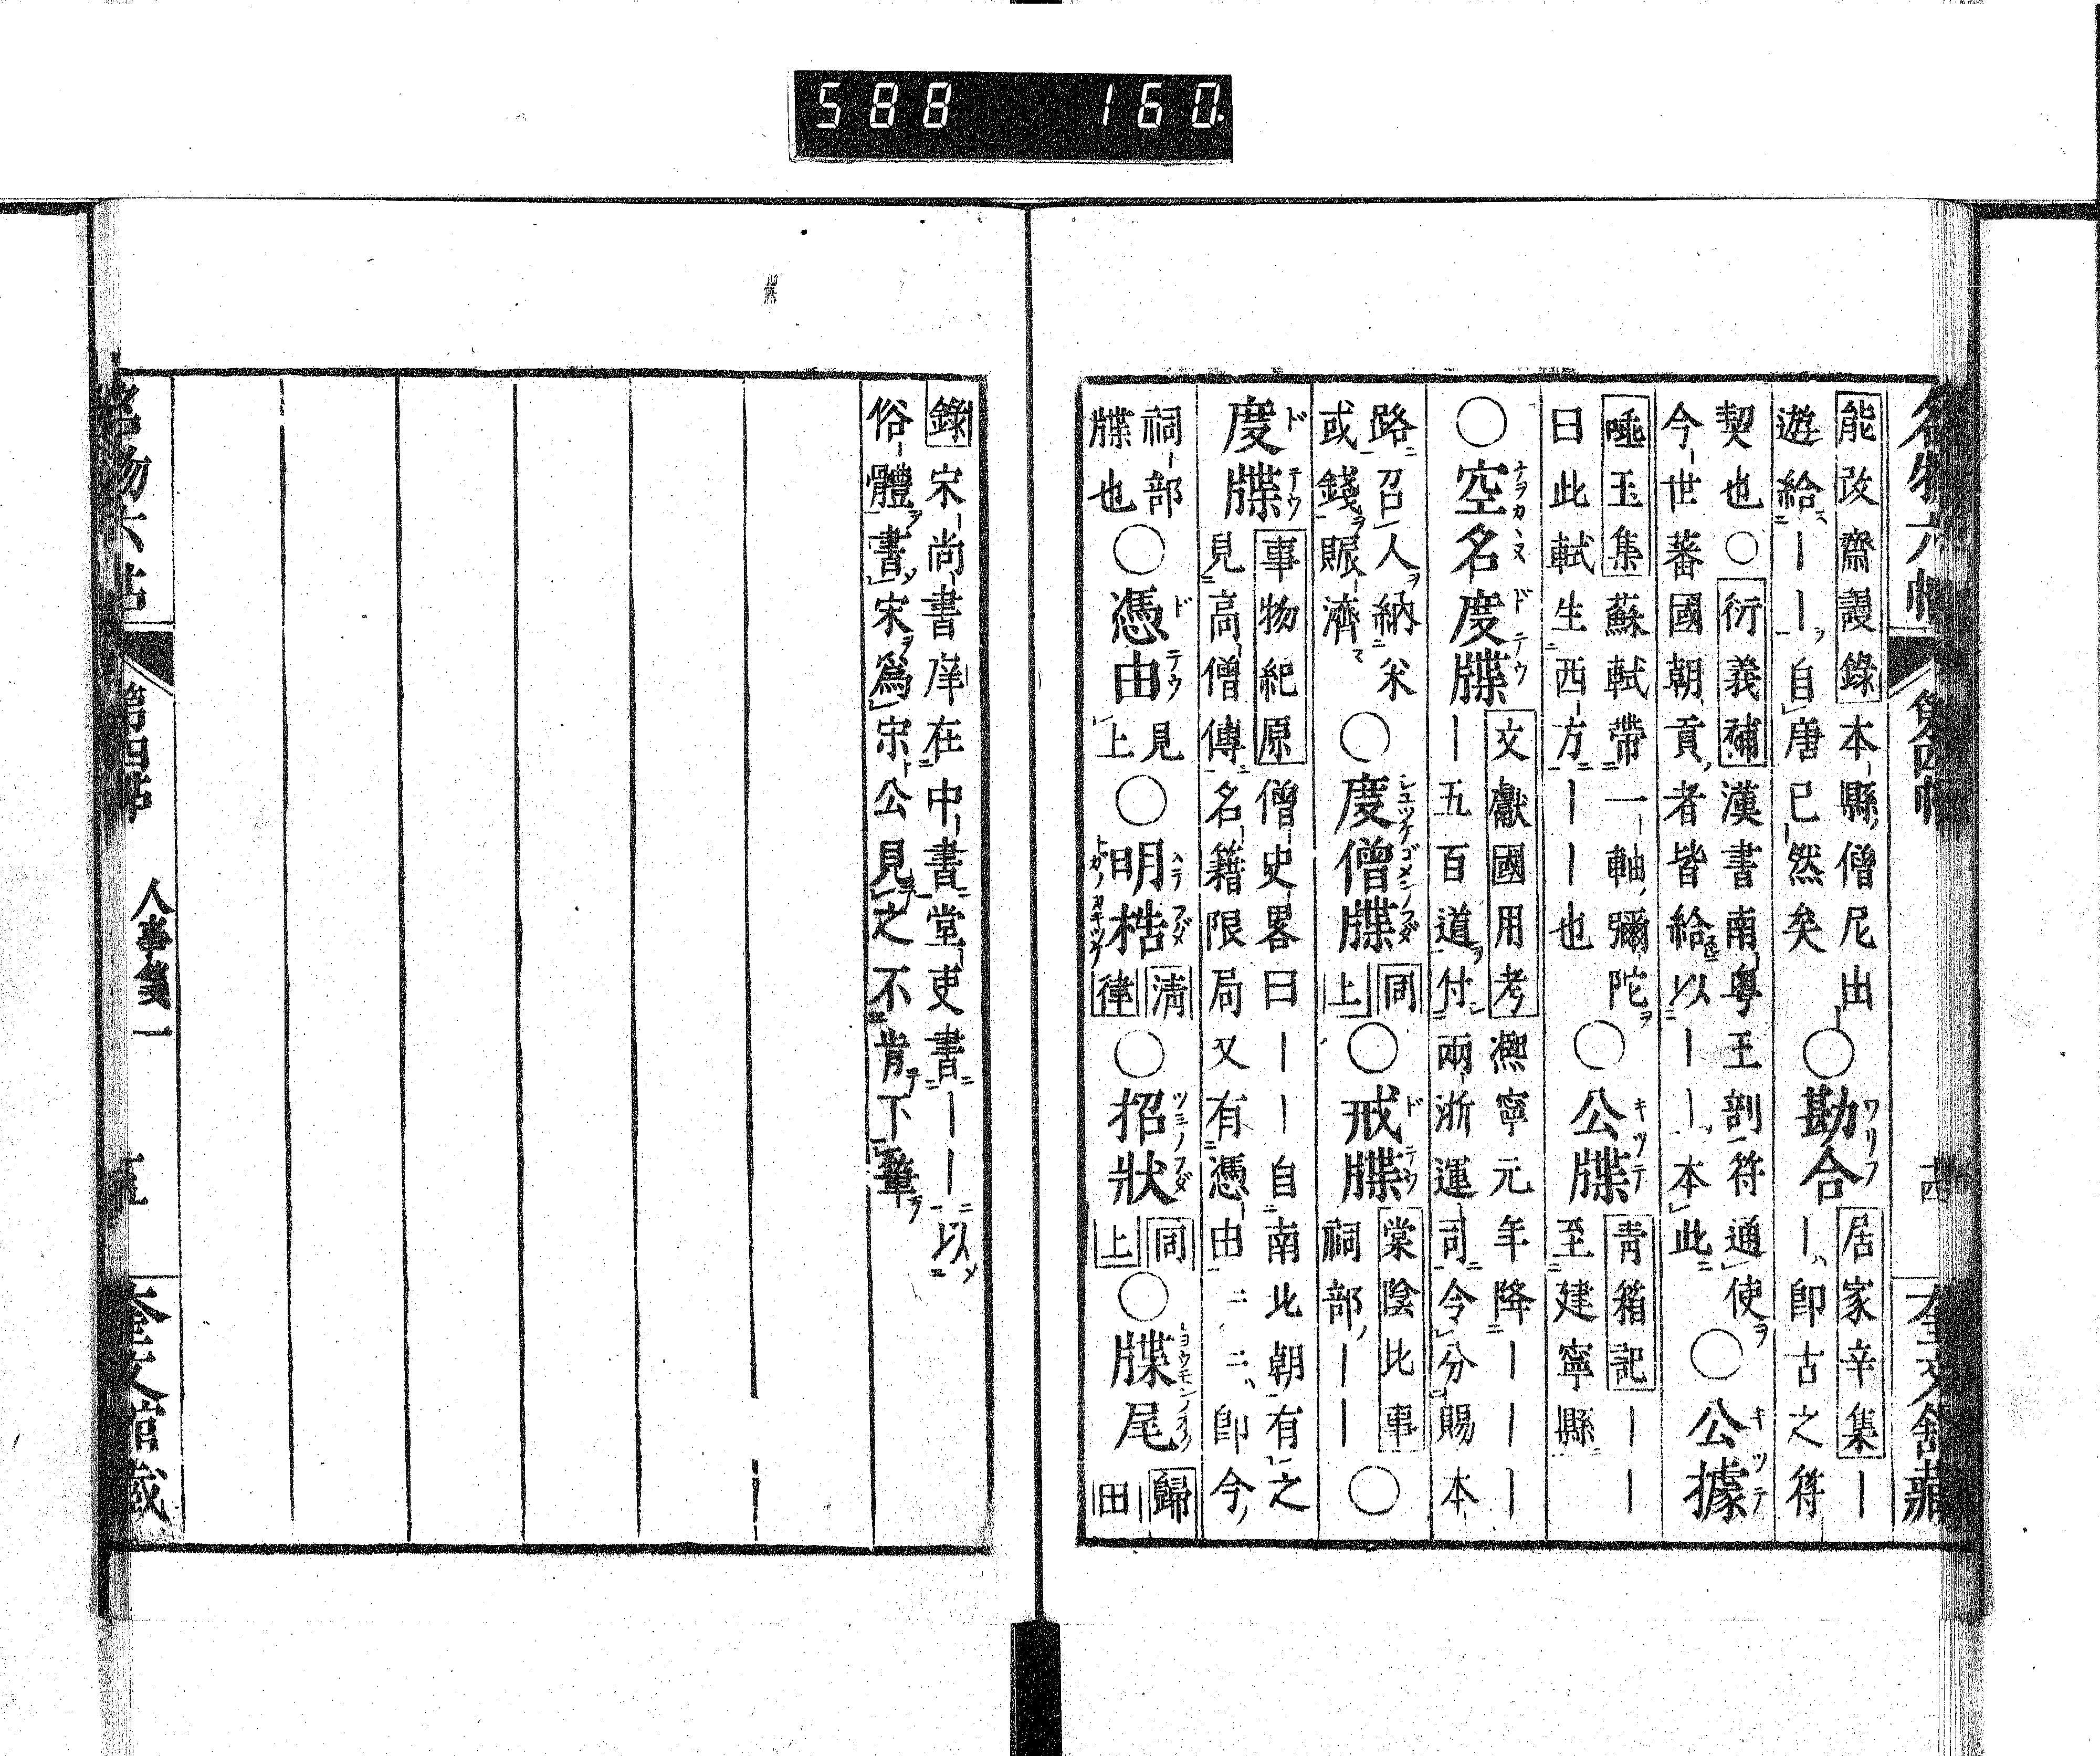 588 160.
名物六帖 第四帖 十四 奎文舘藏
能改齋謾錄本縣僧尼出
遊給丨丨自唐已然矣
○勘合
居家辛集丨
丨即古之符
契也○衍義補漢書南粤王剖符通使
今世蕃國朝貢者皆給以丨丨本此
○公據
唾玉集蘇軾帶一軸彌陀
曰此軾生西方丨丨也
○公牒
青箱記丨丨
至建寧縣
○空名度牒
文獻國用考熈寧元年降丨丨丨
丨五百道付兩浙運司令分賜本
路召人納米
或錢賑濟
○度僧牒
同上
○戒牒
棠陰比事
祠部丨丨
○
度牒
事物紀原僧史畧曰丨丨自南北朝有之
見高僧傳名籍限局又有憑由ニニ即今
祠部
牒也
○憑由
見上
○明梏
清律
○招狀
同上
○牒尾
歸田
錄宋尚書庠在中書堂吏書丨丨以
俗體書宋爲宗公見之不肯下筆
名物六帖 第四帖 人事箋一 十五 奎文舘藏